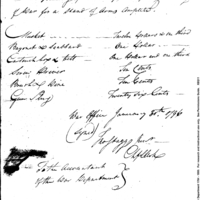 of War for a Stand of Arms complete.
Musket Twelve Dollars and one third
Bayonet & Scabbard One Dollar
Cartouch box & belt One Dollar and one third
Screw Driver Ten Cents
Brush & Wire Ten Cents
Gun Sling Twenty five Cents
War Office January 30th 1796
(Signed)
To the Accountant
of the War Department